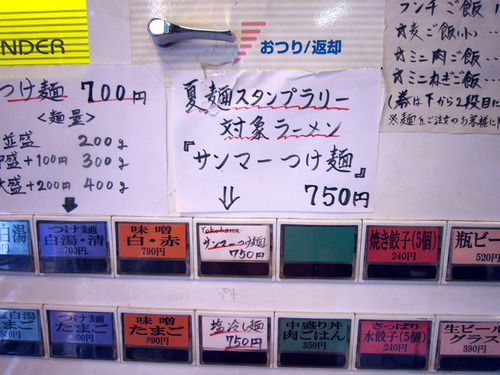 NDER
おつり/返却
ランチご飯
麦ご飯(小)‥
ミニ肉ご飯…
ミニねぎご飯…
(券は下から2段目
※麺をご注文のお客様に
つけ麺 700円
<麺量>
並盛 200g
盛+100円 300g
大盛+200円 400g
夏麺スタンプラリー
対象ラーメン
『サンマーつけ麺』
750円
白湯
つけ麺
白湯・清
700円
味噌
白・赤
790円
Yokohama
サンマーつけ麺
750円
焼き餃子(5個)
240円
瓶ビー
520円
白湯
たまご
つけ麺
たまご
800円
味噌
たまご
890円
塩冷し麺
750円
中盛り丼
肉ごはん
350円
さっぱり
水餃子(5個)
240円
生ビール
グラス
390円